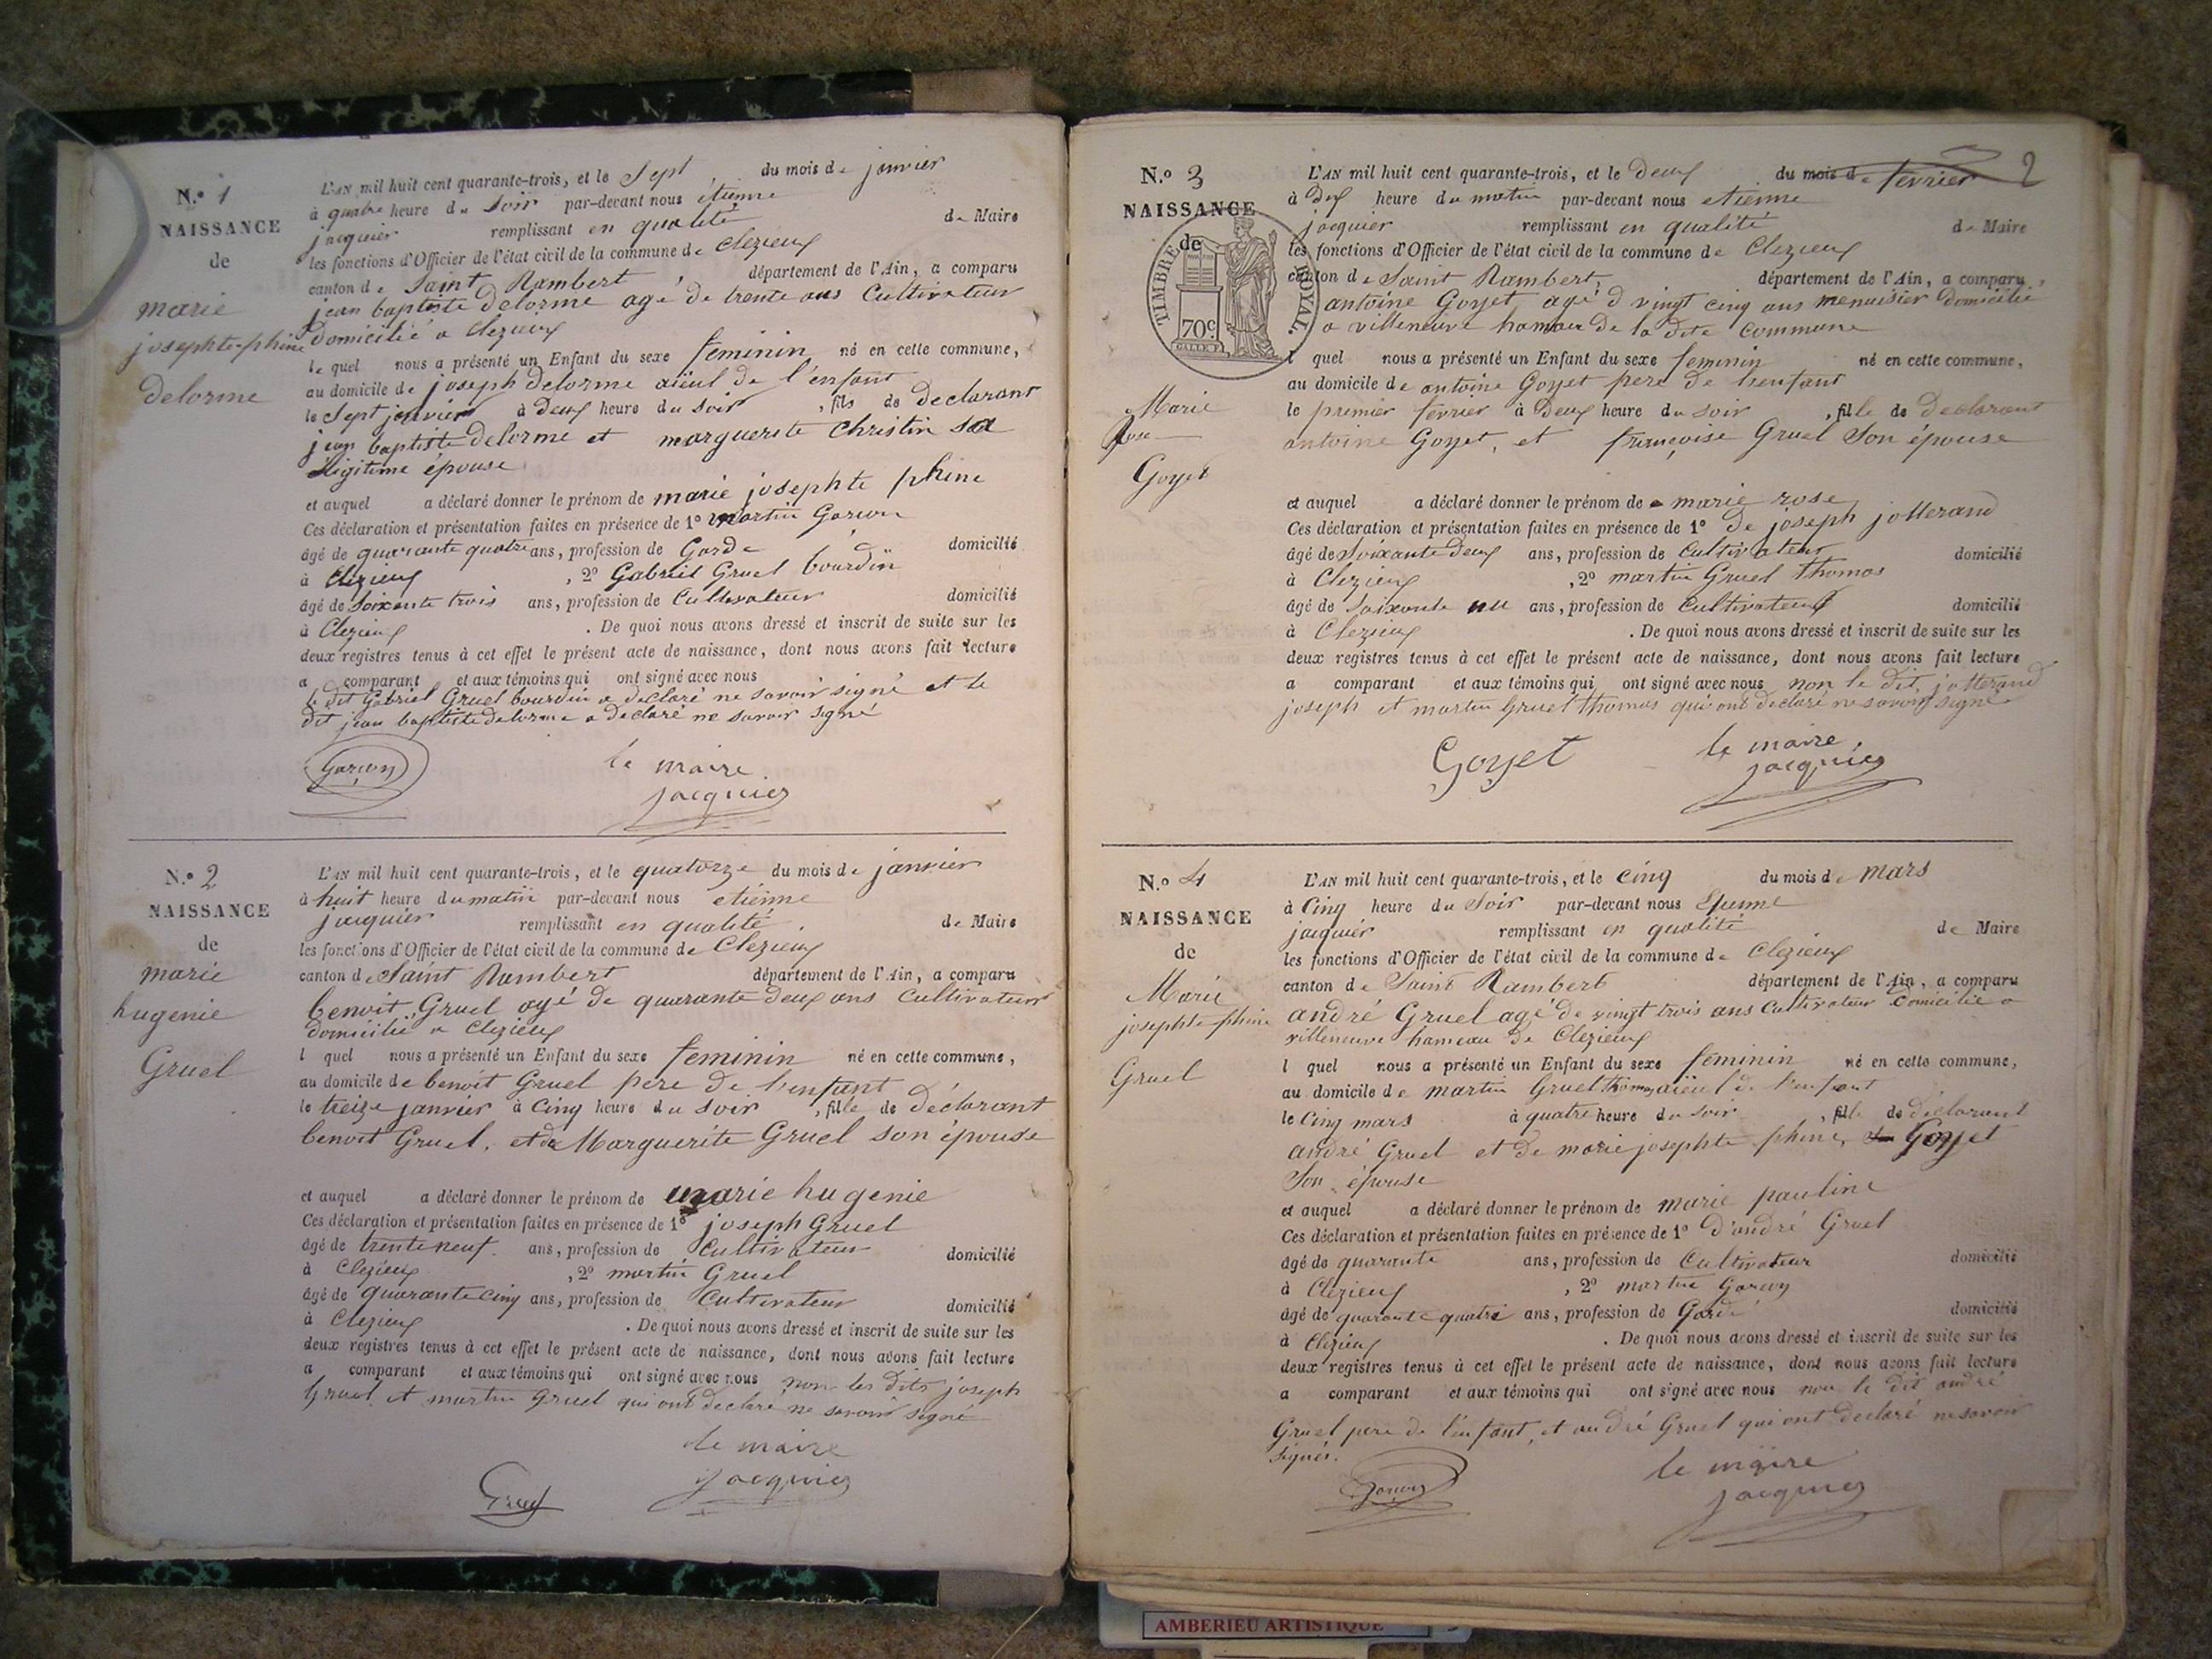 N.o 1
NAISSANCE
de
marie
josephte-phine
delorme
L'AN mil huit cent quarante-trois, et le Sept du mois de janvier
à quatre heure du Soir par-devant nous étienne
jacquier remplissant en qualité de Maire
les fonctions d'Officier de l'état civil de la commune de Clezieux
canton de Saint Rambert, département de l'Ain, a comparu
jean baptiste delorme agé de trente ans Cultivateur
Domicilié a Clezieux
le quel nous a présenté un Enfant du sexe feminin né en cette commune,
au domicile de joseph delorme aïeul de l'enfant
le Sept janvier à Deux heure du Soir, fils de Declarant
jean baptiste delorme et marguerite Christin sa
légitime épouse
et auquel a déclaré donner le prénom de marie josephte phine
Ces déclaration et présentation faites en présence de 1o martin
âgé de quarante quatre ans, profession de Garde domicilié
à Clezieux, 2o Gabriel Gruel bourdin
âgé de Soixante trois ans, profession de Cultivateur domicilié
à Clezieux. De quoi nous avons dressé et inscrit de suite sur les
deux registres tenus à cet effet le présent acte de naissance, dont nous avons fait lecture
a comparant et aux témoins qui ont signé avec nous
le dit Gabriel Gruel bourdin a declaré ne savoir signé et le
dit jean baptiste delorme a declaré ne savoir signé
le maire
jacquier
N.o 2
NAISSANCE
de
marie
hugenie
Gruel
L'AN mil huit cent quarante-trois, et le quatorze du mois de janvier
à huit heure du matin par-devant nous etienne
jacquier remplissant en qualité de Maire
les fonctions d'Officier de l'état civil de la commune de Clezieux
canton de Saint Rambert département de l'Ain, a comparu
benoit Gruel agé de quarante deux ans Cultivateur
domicilié a Clezieux
l quel nous a présenté un Enfant du sexe feminin né en cette commune,
au domicile de benoit Gruel pere de l'enfant
le treize janvier à Cinq heure du Soir, fille de déclarant
benoit Gruel, et de Marguerite Gruel son épouse
et auquel a déclaré donner le prénom de marie hugenie
Ces déclaration et présentation faites en présence de 1o joseph Gruel
âgé de trente neuf ans, profession de Cultivateur domicilié
à Clezieux, 2o martin Gruel
âgé de quarante cinq ans, profession de Cultivateur domicilié
à Clezieux. De quoi nous avons dressé et inscrit de suite sur les
deux registres tenus à cet effet le présent acte de naissance, dont nous avons fait lecture
a comparant et aux témoins qui ont signé avec nous non les dits joseph
Gruel et martin Gruel qui ont declaré ne savoir signé
le maire
Gruel jacquier
2
N.o 3
NAISSANCE
de
TIMBRE ROYAL.
70c
Marie
Rose
Goyet
L'AN mil huit cent quarante-trois, et le Deux du mois de février
à Dix heure du matin par-devant nous etienne
jacquier remplissant en qualité de Maire
les fonctions d'Officier de l'état civil de la commune de Clezieux
canton de Saint Rambert, département de l'Ain, a comparu
antoine Goyet agé d vingt cinq ans menuisier Domicilié
a villeneuve hameau de la dite Commune
l quel nous a présenté un Enfant du sexe feminin né en cette commune,
au domicile de antoine Goyet pere de l'enfant
le premier fevrier à Deux heure du soir, fille de Declarant
antoine Goyet, et françoise Gruel Son épouse
et auquel a déclaré donner le prénom de marie rose
Ces déclaration et présentation faites en présence de 1o De joseph jotterand
âgé de Soixante Deux ans, profession de Cultivateur domicilié
à Clezieux, 2o martin Gruel thomas
âgé de Soixante un ans, profession de Cultivateur domicilié
à Clezieux. De quoi nous avons dressé et inscrit de suite sur les
deux registres tenus à cet effet le présent acte de naissance, dont nous avons fait lecture
a comparant et aux témoins qui ont signé avec nous non le dit, jotterand
joseph et martin Gruel thomas qui ont declaré ne savoir signé
Goyet le maire
jacquier
N.o 4
NAISSANCE
de
Marie
josephte-phine
Gruel
L'AN mil huit cent quarante-trois, et le Cinq du mois de mars
à Cinq heure du Soir par-devant nous Etienne
jacquier remplissant en qualité de Maire
les fonctions d'Officier de l'état civil de la commune de Clezieux
canton de Saint Rambert département de l'Ain, a comparu
andré Gruel agé de vingt trois ans Cultivateur Domicilié a
villeneuve hameau de Clezieux
l quel nous a présenté un Enfant du sexe féminin né en cette commune,
au domicile de martin Gruel thomas aïeul de l'enfant
le Cinq mars à quatre heure du soir, fille de déclarant
andré Gruel et de marie josephte phine, Goyet
Son épouse
et auquel a déclaré donner le prénom de marie pauline
Ces déclaration et présentation faites en présence de 1o D'andré Gruel
âgé de quarante ans, profession de Cultivateur domicilié
à Clezieux, 2o martin
âgé de quarante quatre ans, profession de Garde domicilié
à Clezieux. De quoi nous avons dressé et inscrit de suite sur les
deux registres tenus à cet effet le présent acte de naissance, dont nous avons fait lecture
a comparant et aux témoins qui ont signé avec nous non le dit andré
Gruel pere de l'enfant, et andré Gruel qui ont declaré ne savoir
signés.
le maire
jacquier
AMBERIEU ARTISTIQUE